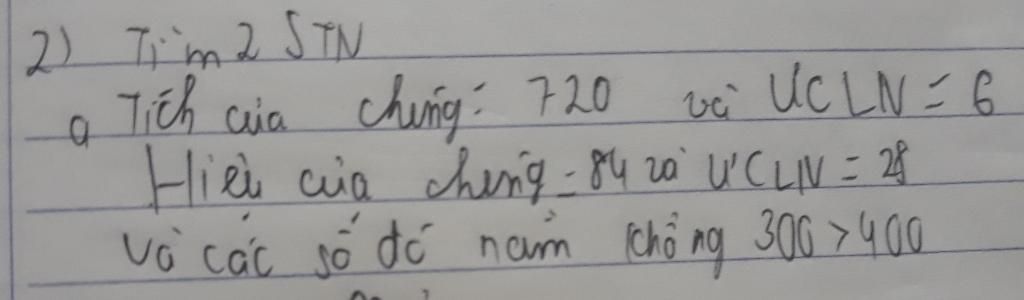 2) Tìm 2 STN
a Tích của chúng: 720 và ƯCLN = 6
Hiệu của chúng = 84 và ƯCLN = 28
Và các số đó nằm khỏng 300 > 400